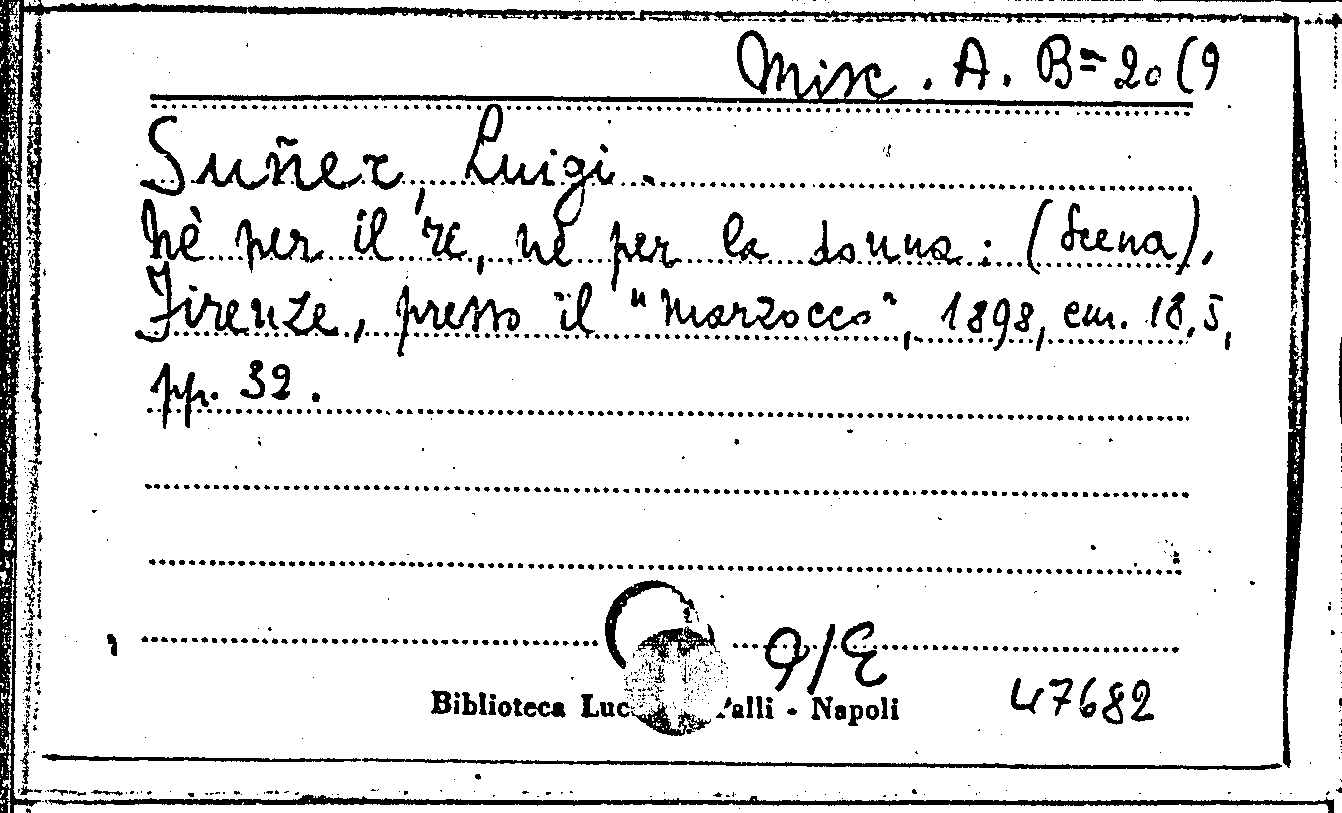 Misc. A. B=20(9
Suñer, Luigi.
Nè per il re, nè per la donna: (Scena).
Firenze, presso il "Marzocco", 1898, cm. 18,5,
pp. 32.
O/E
Biblioteca Luc Palli - Napoli
47682